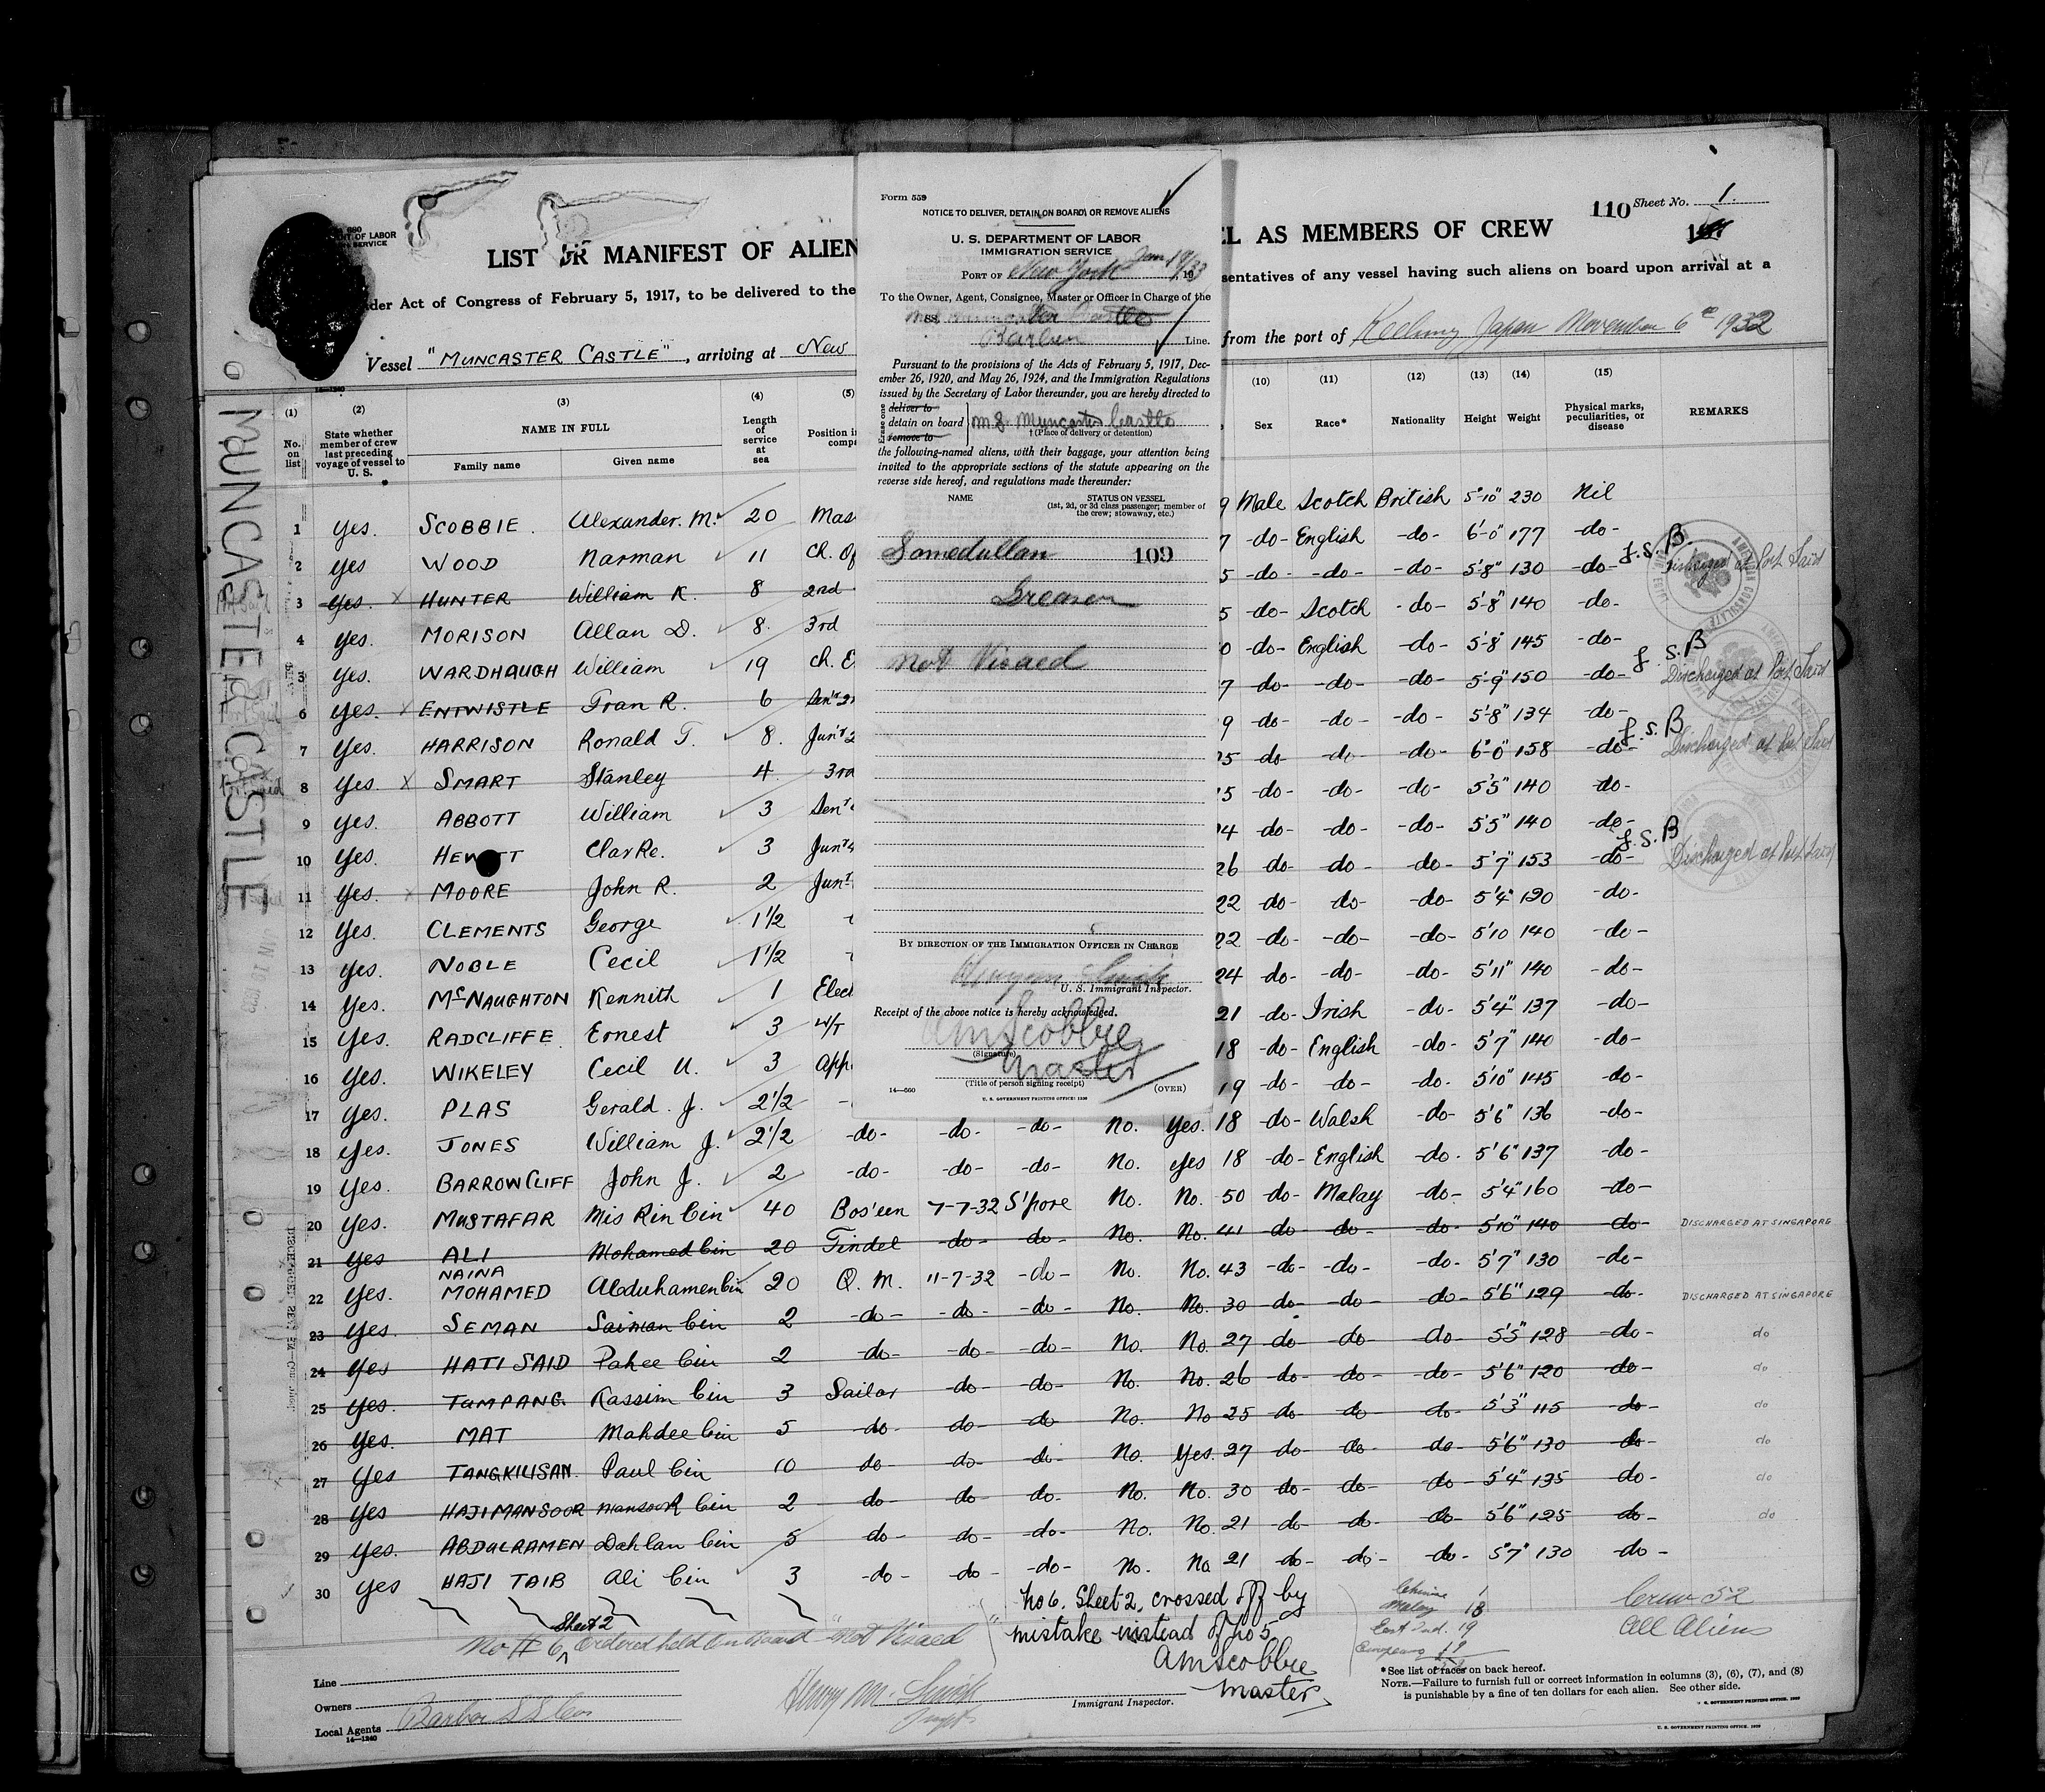 110 Sheet No. 1.
LIST OR MANIFEST OF ALIEN
EL AS MEMBERS OF CREW
der Act of Congress of February 5, 1917, to be delivered to the
sentatives of any vessel having such aliens on board upon arrival at a
Vessel "MUNCASTER CASTLE", arriving at New
from the port of Keelung Japan November 6th 1932
MUNCASTER CASTLE
Form 559
NOTICE TO DELIVER, DETAIN ON BOARD, OR REMOVE ALIENS
U. S. DEPARTMENT OF LABOR
IMMIGRATION SERVICE
PORT OF New York Jan 19/33
To the Owner, Agent, Consignee, Master or Officer in Charge of the
Muncaster Castle
Barber Line.
Pursuant to the provisions of the Acts of February 5, 1917, Dec-
ember 26, 1920, and May 26, 1924, and the Immigration Regulations
issued by the Secretary of Labor thereunder, you are hereby directed to
Erase one
deliver to
detain on board M.S. Muncaster Castle
remove to † (Place of delivery or detention)
the following-named aliens, with their baggage, your attention being
invited to the appropriate sections of the statute appearing on the
reverse side hereof, and regulations made thereunder:
NAME STATUS ON VESSEL
(1st, 2d, or 3d class passenger; member of
the crew; stowaway, etc.)
Somedullan 109
Greaser
Not Visaed
BY DIRECTION OF THE IMMIGRATION OFFICER IN CHARGE
U. S. Immigrant Inspector.
Receipt of the above notice is hereby acknowledged.
AMScobbie
(Signature)
Master
(Title of person signing receipt)
14—660 (OVER)
U. S. GOVERNMENT PRINTING OFFICE: 1930
(1) (2) (3) (4) (5) (10) (11) (12) (13) (14) (15)
No. on list
State whether member of crew last preceding voyage of vessel to U. S.
NAME IN FULL
Family name Given name
Length of service at sea
Position i
Sex Race* Nationality Height Weight Physical marks, peculiarities, or disease REMARKS
1 yes. SCOBBIE. Alexander. M. 20 Mas 9 Male Scotch British 5'-10" 230 Nil
2 yes WOOD Narman 11 Ch. Of 7 -do- English -do- 6'-0" 177 -do-
3 yes. X HUNTER William K. 8 2nd 5 -do- -do- -do- 5'-8" 130 -do- J.S.B. Discharged at Port Said
4 yes. MORISON Allan D. 8. 3rd 5 -do- Scotch -do- 5'-8" 140 -do-
5 yes. WARDHAUGH William 19 Ch. E 0 -do- English -do- 5'-8" 145 -do-
6 yes. X ENTWISTLE Fran R. 6 Sen'r 2 7 -do- -do- -do- 5'-9" 150 -do- J.S.B Discharged at Port Said
7 yes. HARRISON Ronald T. 8. Jun'r 2 9 -do- -do- -do- 5'-8" 134 -do-
8 yes. X SMART Stanley 4. 3rd 25 -do- -do- -do- 6'-0" 158 -do- J.S.B Discharged at Port Said
9 yes. ABBOTT William 3 Sen'r 5 -do- -do- -do- 5'5" 140 -do-
10 yes. HEWITT Clarke. 3 Jun'r 4 24 -do- -do- -do- 5'5" 140 -do-
11 yes. X MOORE John R. 2 Jun'r 26 -do- -do- -do- 5'7" 153 -do- J.S.B Discharged at Port Said
12 yes. CLEMENTS George 1½ 22 -do- -do- -do- 5'4" 130 -do-
13 yes. NOBLE Cecil 1½ 22 -do- -do- -do- 5'10 140 -do-
14 yes. McNAUGHTON Kennith 1 Elect 24 -do- -do- -do- 5'11" 140 -do-
15 yes. RADCLIFFE Ernest 3 W/T 21 -do- Irish -do- 5'4" 137 -do-
16 yes. WIKELEY Cecil U. 3 App 18 -do- English -do- 5'7" 140 -do-
17 yes. PLAS Gerald. J. 2½ 19 -do- -do- -do- 5'10" 145 -do-
18 yes. JONES William J. 2½ -do- -do- -do- No. Yes. 18 -do- Walsh -do- 5'6" 136 -do-
19 yes. BARROWCLIFF John J. 2 -do- -do- -do- No. yes 18 -do- English -do- 5'6" 137 -do-
20 yes. MUSTAFAR Mis Rin bin 40 Bos'een 7-7-32 S'pore No. No. 50 -do- Malay -do- 5'4" 160 -do-
21 yes ALI Mohamed bin 20 Tindel -do- -do- No. No. 41 -do- -do- -do- 5'10" 140 -do- DISCHARGED AT SINGAPORE
22 yes. NAINA MOHAMED Abduhamen bin 20 Q. M. 11-7-32 -do- No. No. 43 -do- -do- -do- 5'7" 130 -do-
23 yes. SEMAN Saiman bin 2 -do- -do- -do- No. No. 30 -do- -do- -do- 5'6" 129 -do- DISCHARGED AT SINGAPORE
24 yes HATI SAID Pahee bin 2 -do- -do- -do- No. No. 27 -do- -do- -do- 5'5" 128 -do- do
25 yes. TUMPANG. Kassim bin 3 Sailor -do- -do- No. No. 26 -do- -do- -do- 5'6" 120 -do- do
26 yes. MAT Mahdee bin 5 -do- -do- -do- No. No 25 -do- -do- -do- 5'3" 115 -do- do
27 yes TANGKILISAN. Paul bin 10 do- -do- -do- No. Yes. 27 -do- -do- -do- 5'6" 130 -do- do
28 yes HAJI MANSOOR Mansoor bin 2 -do- -do- -do- No. No. 30 -do- -do- -do- 5'4" 135 -do- do
29 yes. ABDULRAMEN Dahlan bin 5 -do- -do- -do- No. No. 21 -do- -do- -do- 5'6" 125 -do- do
30 yes HAJI TAIB Ali bin 3 -do- -do- -do- No. No 21 -do- -do- -do- 5'7" 130 -do-
"No 6. Sheet 2. crossed off by
mistake instead of No 5
AMScobbie
Master
Chinese 1
Malay 18
East Ind. 19
Europeans
Crew 52
All Aliens
Sheet 2
No # 6 Ordered held on board "Not Visaed"
Line
Owners
Local Agents Barber S S Co
14—1240
Henry M. Smith
Immigrant Inspector.
*See list of races on back hereof.
NOTE.—Failure to furnish full or correct information in columns (3), (6), (7), and (8)
is punishable by a fine of ten dollars for each alien. See other side.
U. S. GOVERNMENT PRINTING OFFICE. 1929